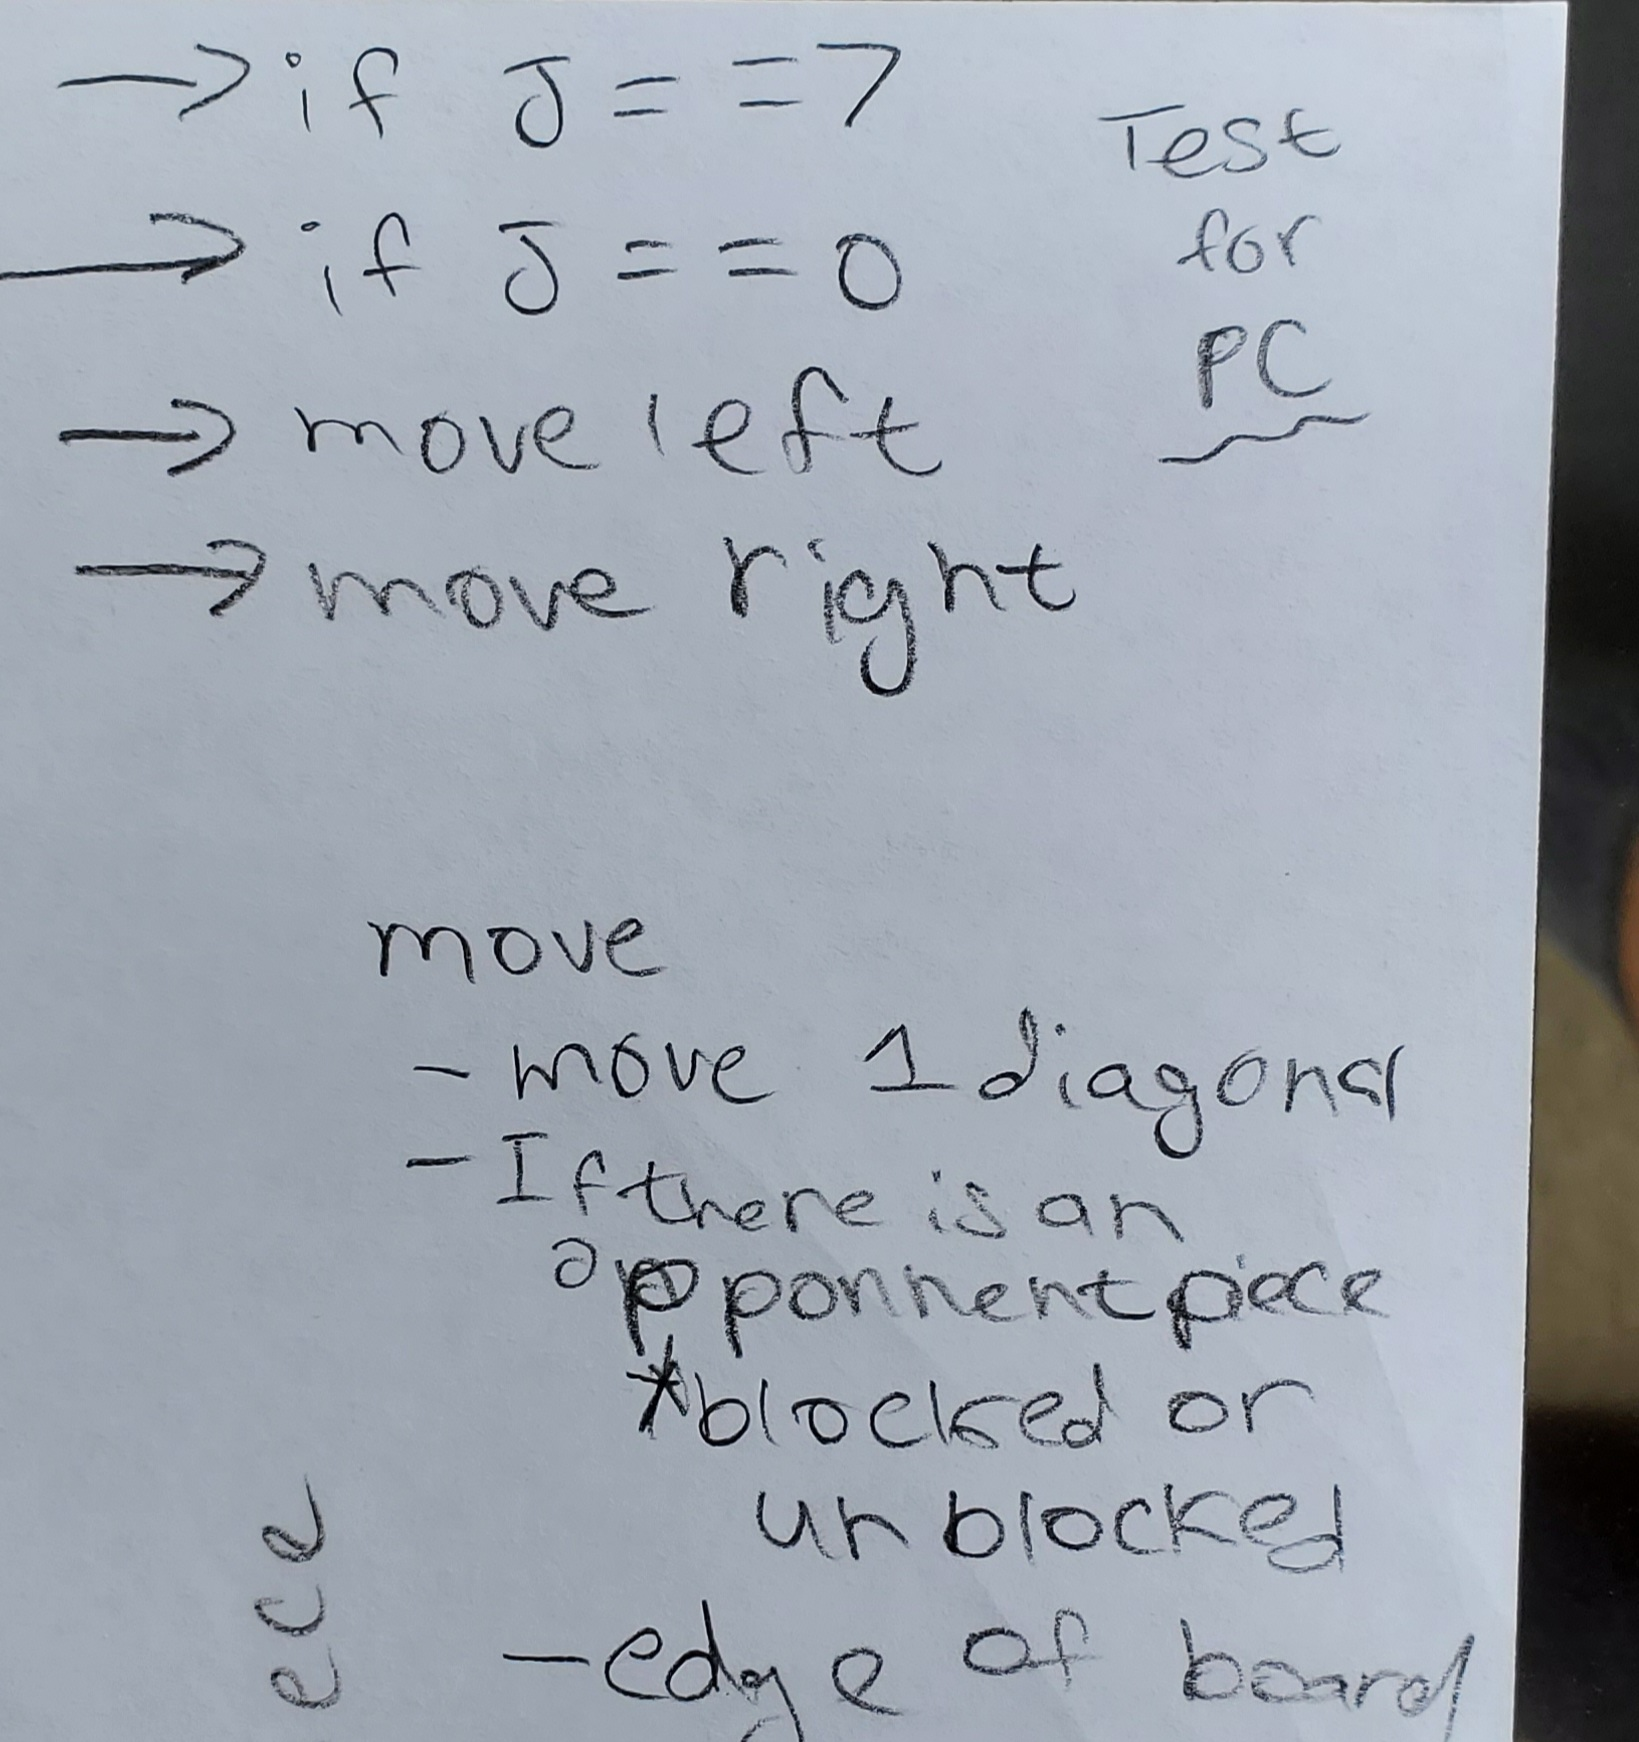 → if J = = 7
→ if J = = 0
→ move left
→ move right
Test
for
PC
move
- move 1 diagonal
- If there is an
opponnent piece
*blocked or
unblocked
- edge of board